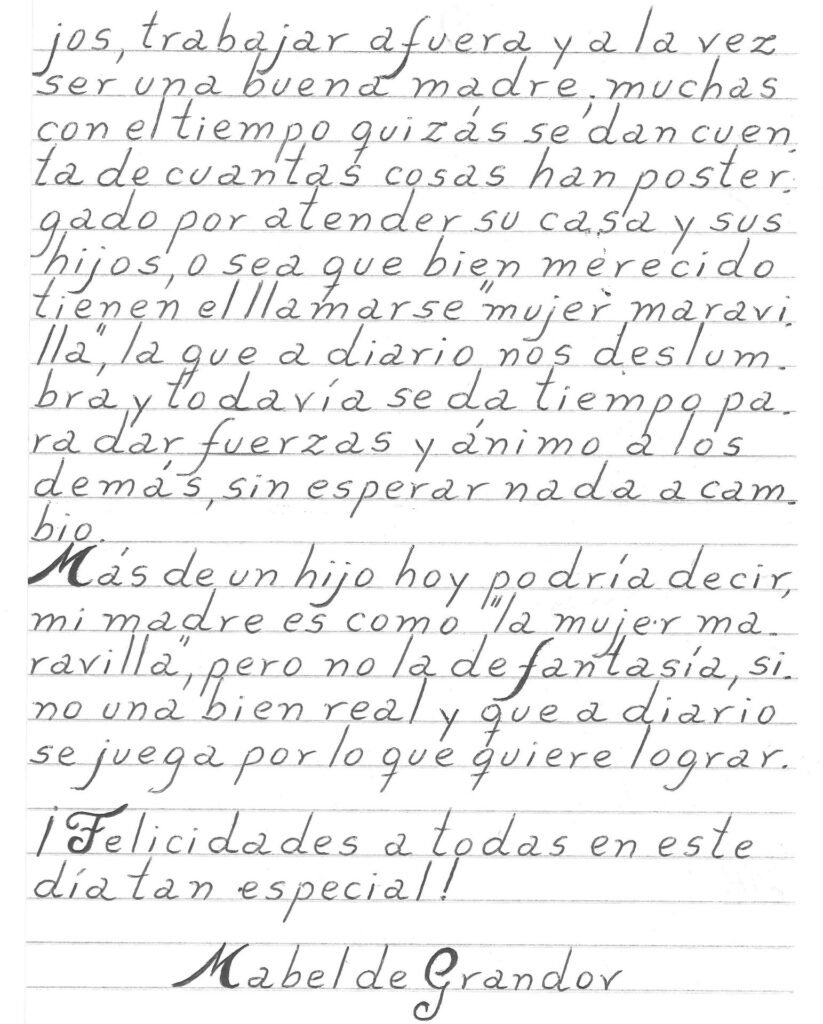 jos, trabajar afuera y a la vez
ser una buena madre, muchas
con el tiempo quizás se dan cuen-
ta de cuantas cosas han poster-
gado por atender su casa y sus
hijos, o sea que bien merecido
tienen el llamarse "mujer maravi-
lla", la que a diario nos deslum-
bra y todavía se da tiempo pa-
ra dar fuerzas y ánimo a los
demás, sin esperar nada a cam-
bio.
Más de un hijo hoy podría decir,
mi madre es como "la mujer ma-
ravilla", pero no la de fantasía, si-
no una bien real y que a diario
se juega por lo que quiere lograr.
¡Felicidades a todas en este
día tan especial!
Mabel de Grandov